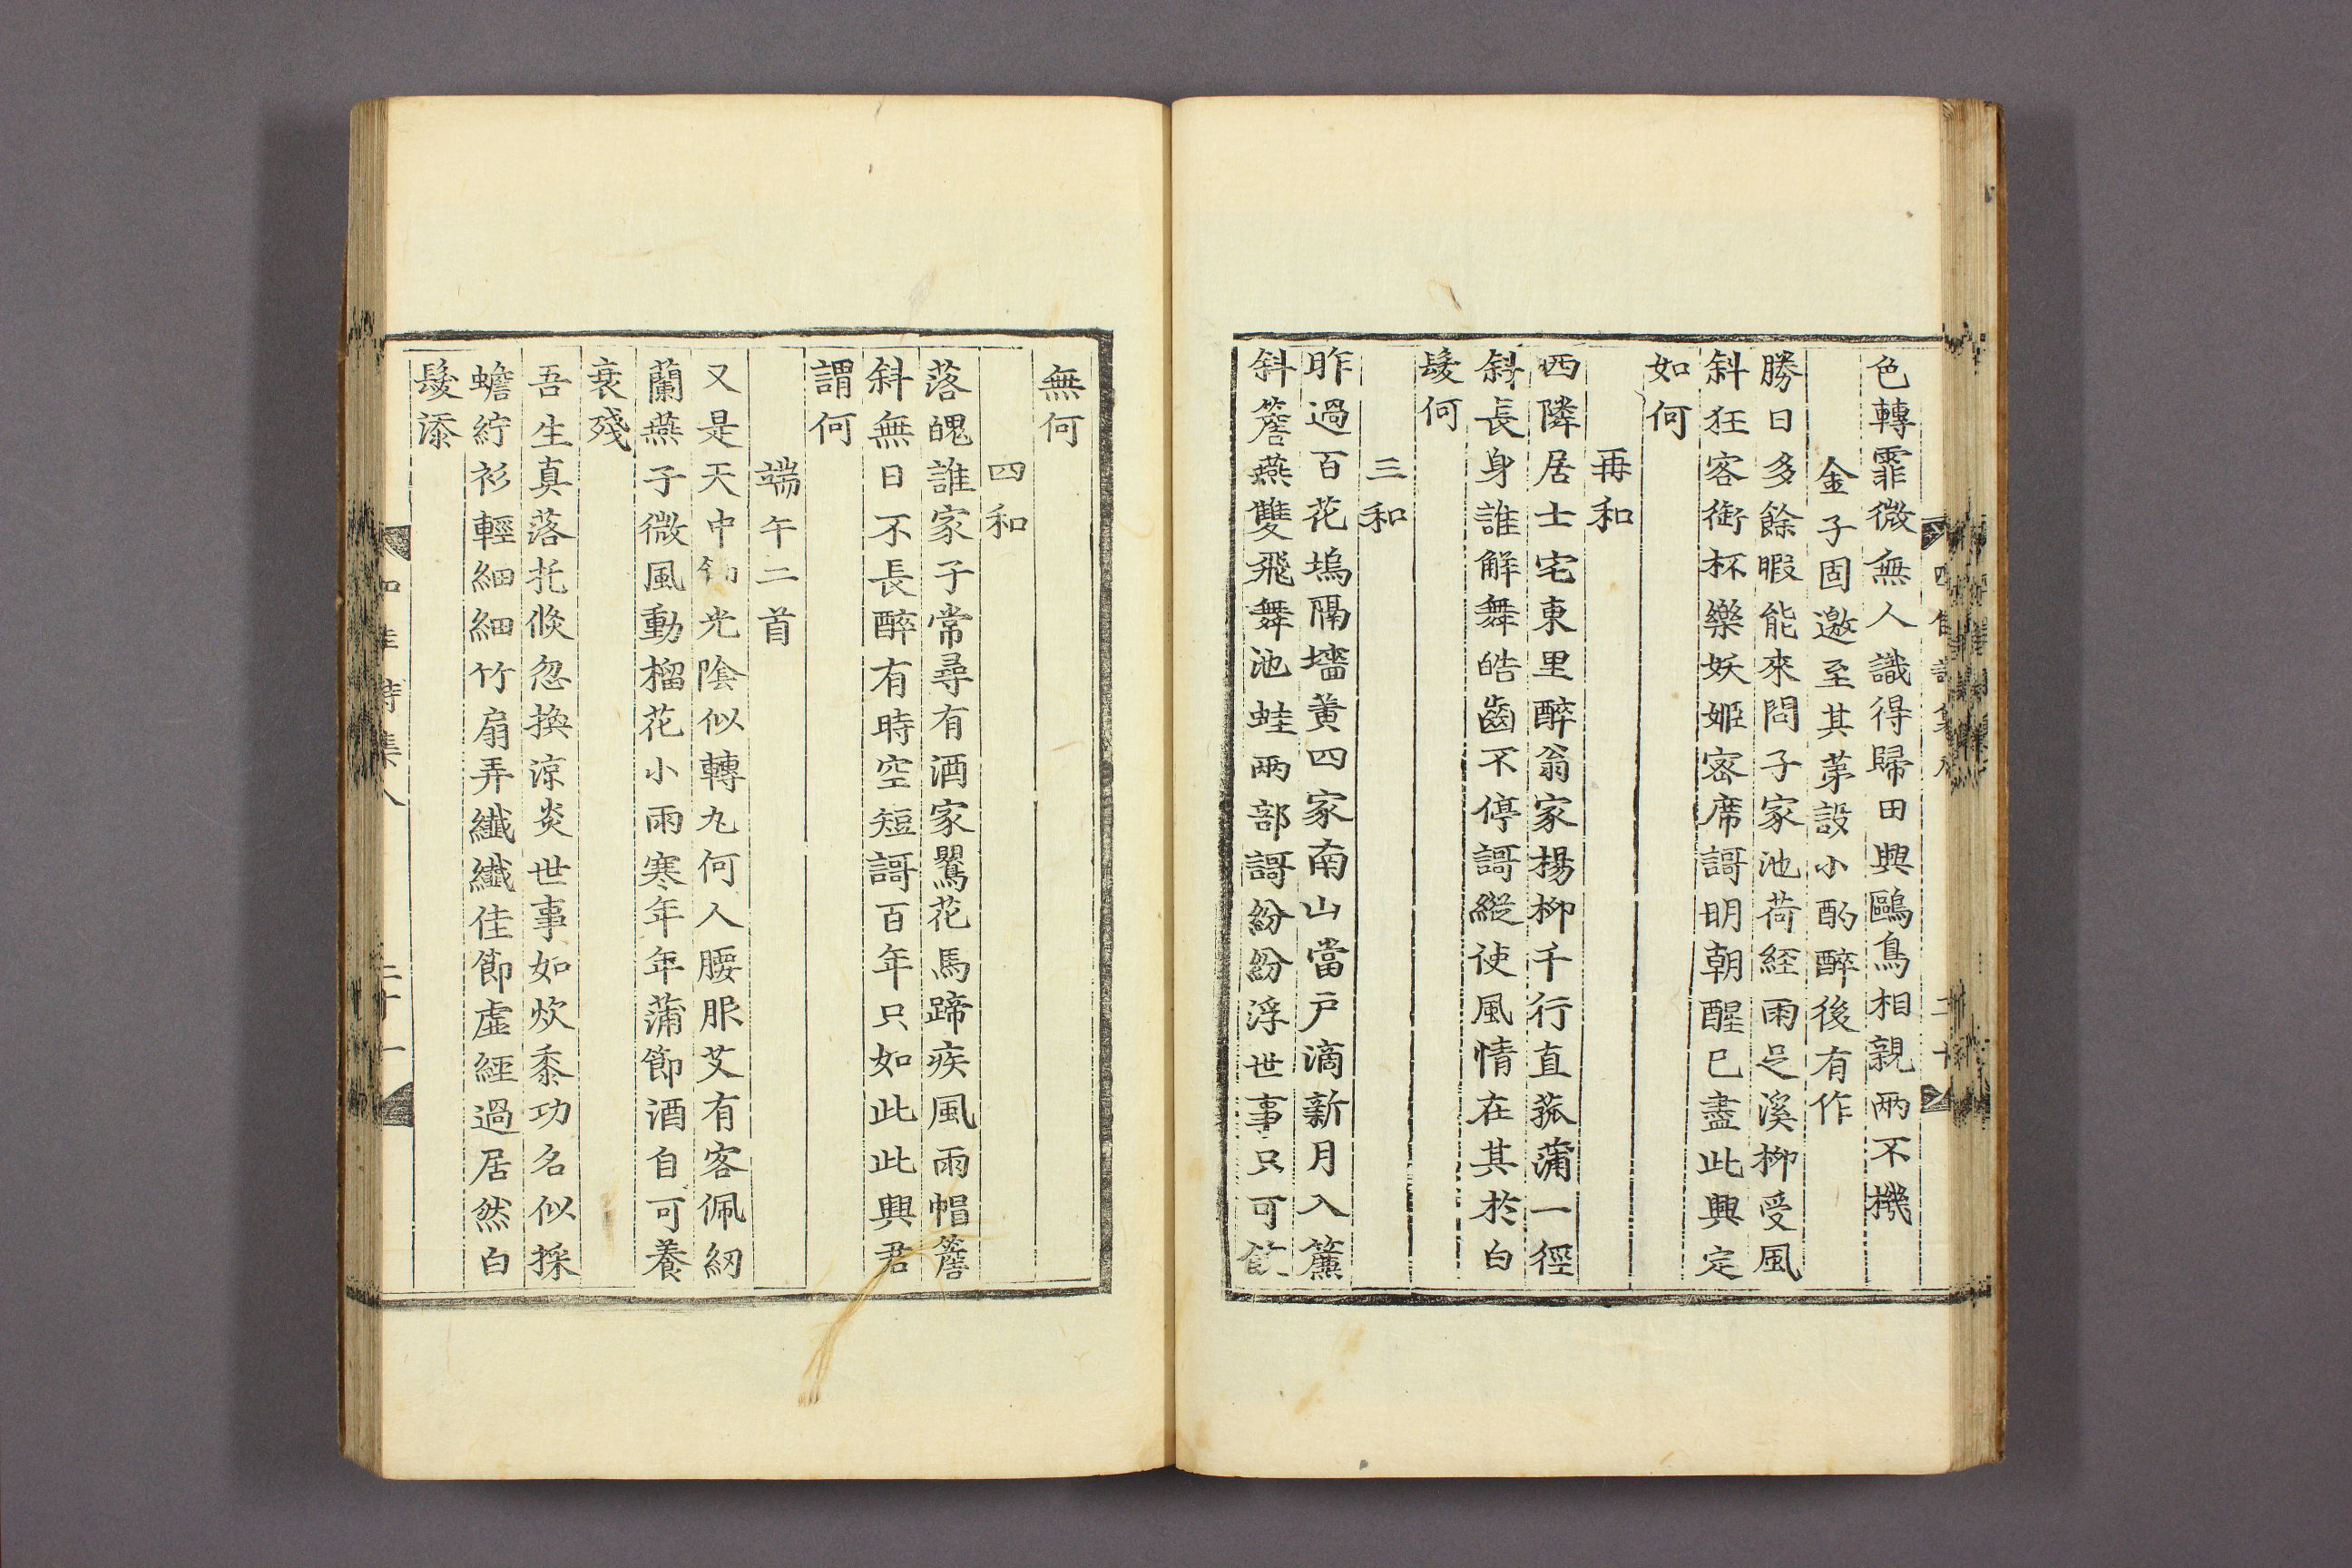 色轉霏微無人識得歸田興鷗鳥相親兩不機
金子固邀至其第設小酌醉後有作
勝日多餘暇能來問子家池荷経雨足溪柳受風
斜狂客銜杯樂妖姬密席謌明朝醒已盡此興定
如何
再和
西隣居士宅東里醉翁家楊柳千行直菰蒲一徑
斜長身誰解舞皓齒不停謌縱使風情在其於白
髮何
三和
昨過百花塢隔墻黃四家南山當戶滴新月入簾
斜簷燕雙飛舞池蛙兩部謌紛紛浮世事只可飮
無何
四和
落魄誰家子常尋有酒家鸎花馬蹄疾風雨帽簷
斜無日不長醉有時空短謌百年只如此此興君
謂何
端午二首
又是天中光陰似轉丸何人腰服艾有客佩紉
蘭燕子微風動榴花小雨寒年年蒲節酒自可養
衰殘
吾生真落托倏忽換涼炎世事如炊黍功名似採
蟾紵衫輕細細竹扇弄纖纖佳節虛經過居然白
髮添